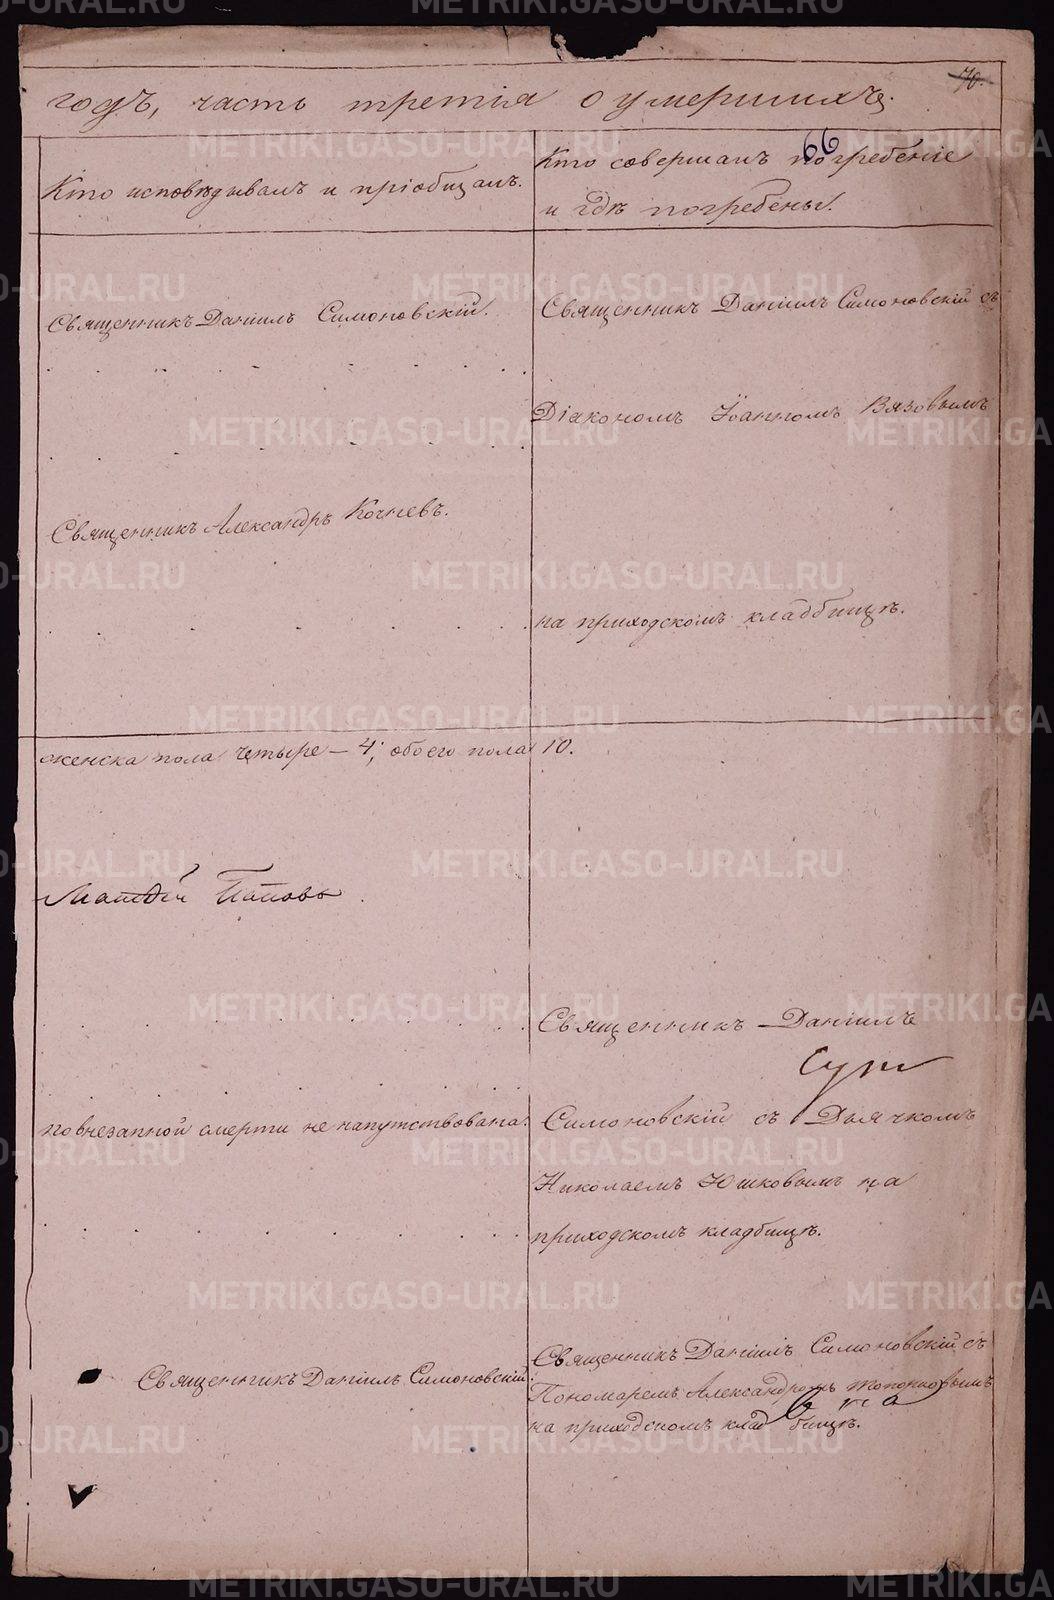 70.
годъ, часть третія о умершихъ.
66
Кто исповѣдывалъ и пріобщалъ.
Кто совершалъ погребеніе
и гдѣ погребены.
Священникъ Даніилъ Симоновскій.
Священникъ Даніилъ Симоновскій съ
Діакономъ Іоанномъ Вязовымъ
Священникъ Александръ Кочневъ.
на приходскомъ кладбищѣ.
женска пола четыре – 4; обоего пола 10.
Матѳей Поповъ
Священникъ Даніилъ
Симоновскій съ Дьячкомъ
по внезапной смерти не напутствована.
Николаемъ Юшковымъ на
приходскомъ кладбищѣ.
Священникъ Даніилъ Симоновскій съ
Священникъ Даніилъ Симоновскій.
Пономаремъ Александромъ Топорковымъ
на приходскомъ кладбищѣ.
METRIKI.GASO-URAL.RU